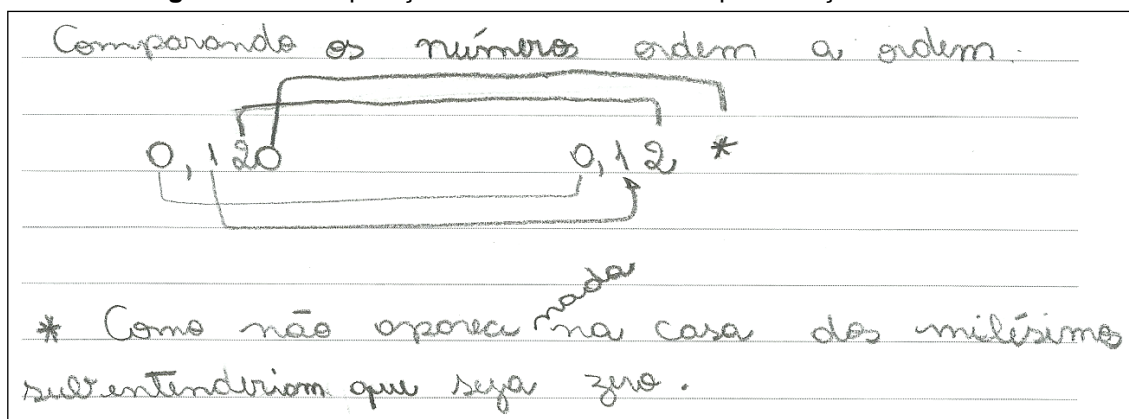 Comparando os números ordem a ordem.
0,120 0,12 *
nada
* Como não aparece na casa dos milésimos
subentenderiam que seja zero.